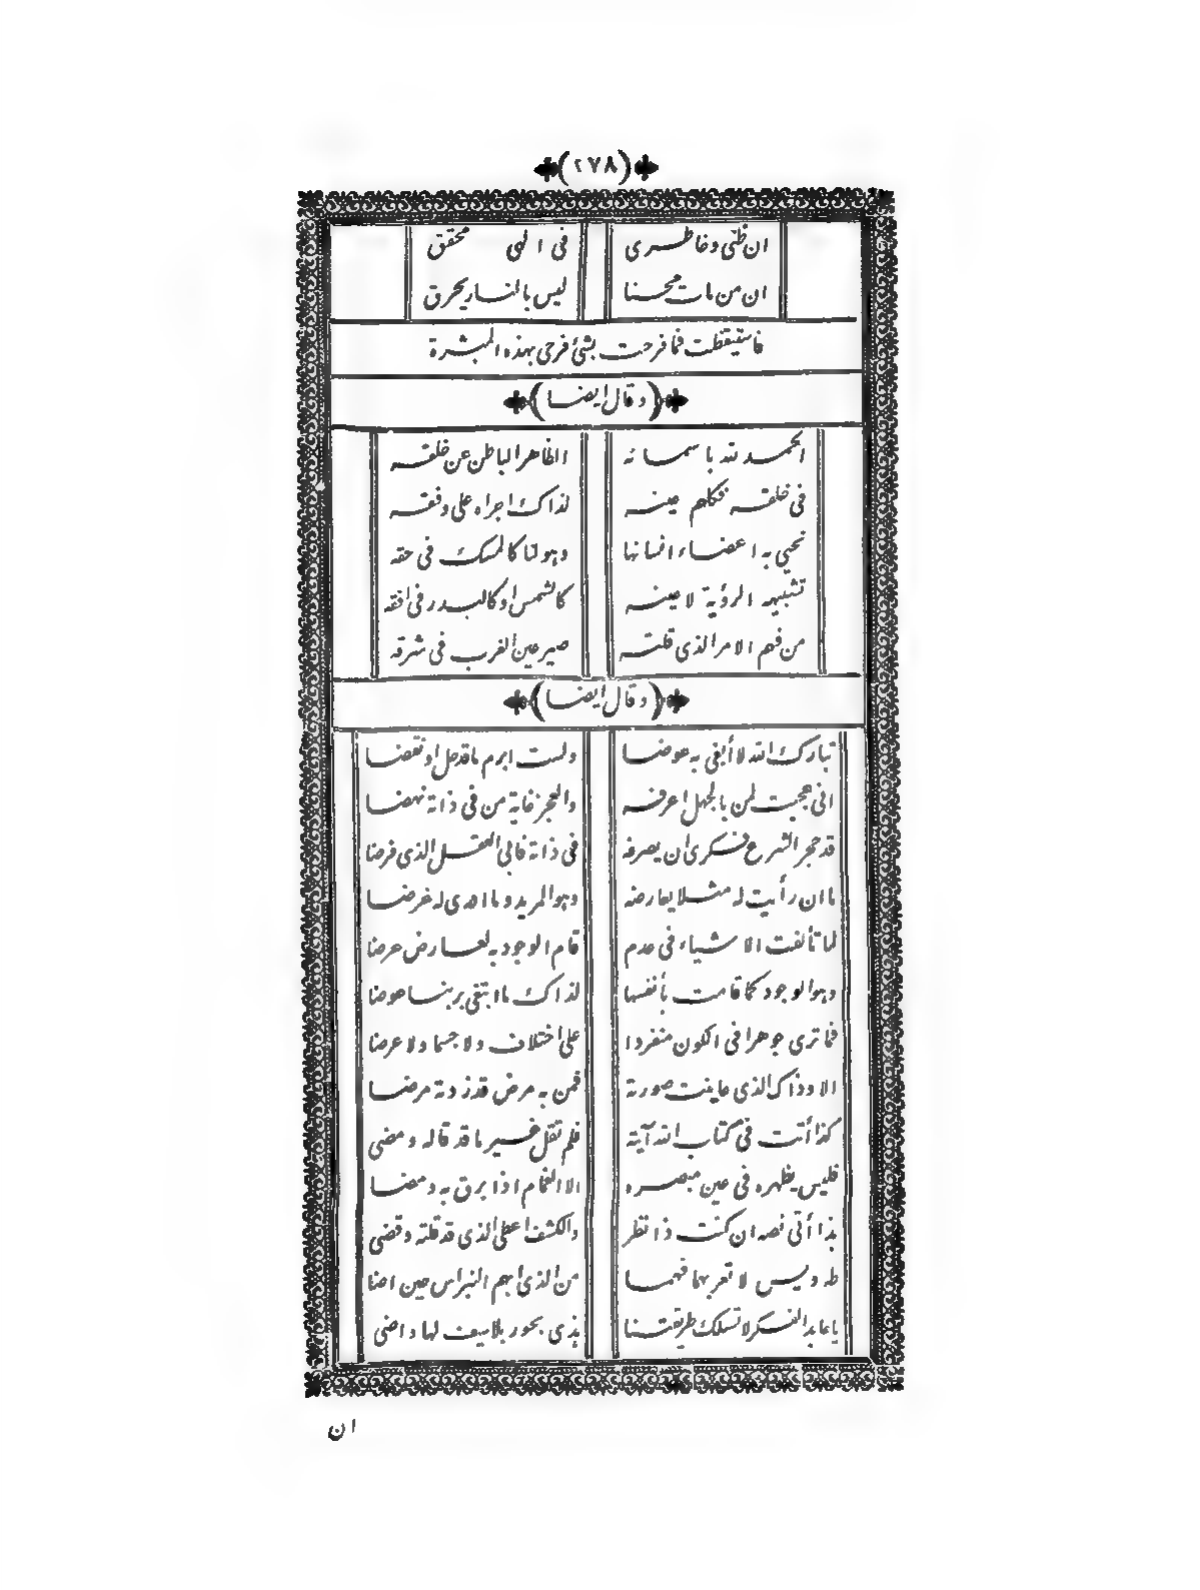 (٢٧٨)
ان ظنى وخاطرى في الهى محقق
ان من مات محسنا ليس بالنار يحرق
فاستيقظت فما فرحت بشئ فرحى بهذه المبشرة
(وقال ايضا)
الحمد لله باسمائه الظاهر الباطن عن خلقه
في خلقه فكلهم عينه لذاك اجراه على وفقه
نحيي به اعضاء انسانها وهو لنا كالمسك في حقه
تشبيهه الرؤية لا عينه كالشمس او كالبدر في افقه
من فهم الامر الذي قلته صير عين الغرب في شرقه
(وقال ايضا)
تبارك الله لا أبغى به عوضا ولست ابرم ما قد حل او نقضا
انى عجبت لمن بالجهل اعرفه والعجز غاية من في ذاته نهضا
قد حجر الشرع فكرى ان يصرفه في ذاته فابي العقل الذي فرضا
ما ان رأيت له مثلا يعارضه وهو المريد وما ادرى له غرضا
لما تألفت الاشياء في عدم قام الوجود به لعارض عرضا
وهو الوجود كما قامت بأنفسها لذاك ما ابتغى بربنا عوضا
فما ترى جوهرا في الكون منفردا على اختلاف ولا جسما ولا عرضا
الا وذاك الذي عاينت صورته فمن به مرض قد زدته مرضا
كذا أتت في كتاب الله آية فلم تقل غير ما قد قاله ومضى
فليس يظهره في عين مبصره الا الغمام اذا برق به ومضا
بذا أتى نصه ان كنت ذا نظر والكشف اعطى الذي قد قلته وقضى
طه ويس لا تعربهما فهما من الذي ابهم النبراس حين اضا
يا عابد الفكر لا تسلك طريقتنا بذى بحور بلا سيف لها واضى
ان